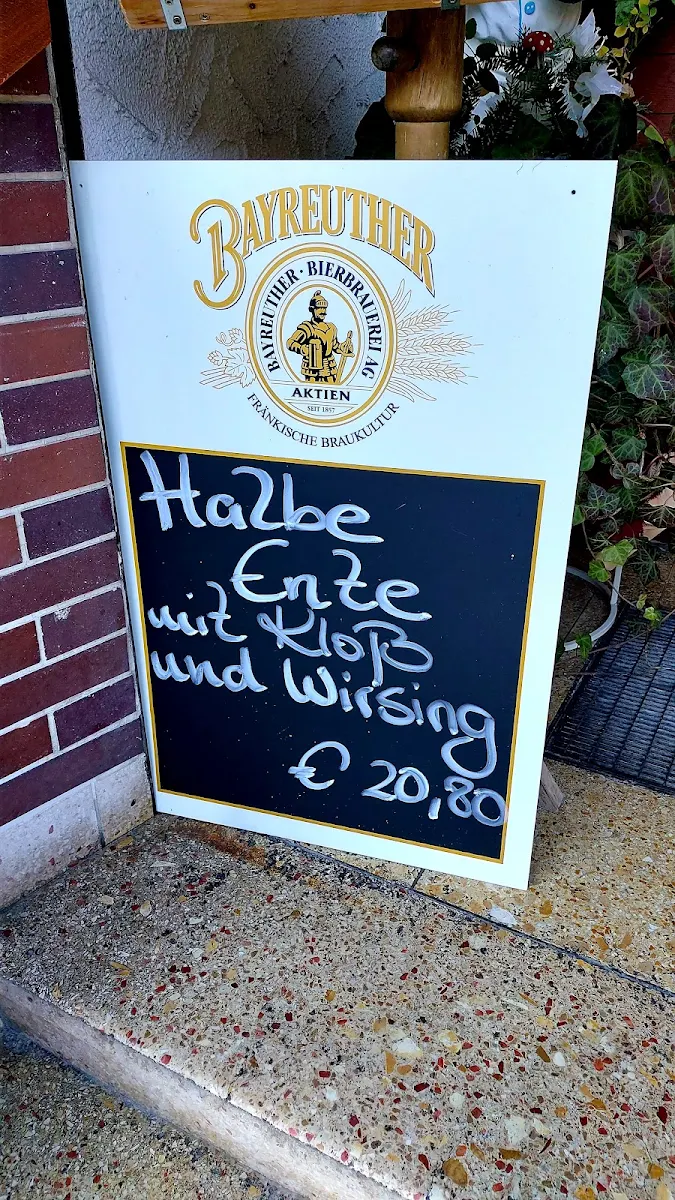 BAYREUTHER
BAYREUTHER · BIERBRAUEREI AG
AKTIEN
SEIT 1857
FRÄNKISCHE BRAUKULTUR
Halbe
Ente
mit Kloß
und Wirsing
€ 20,80